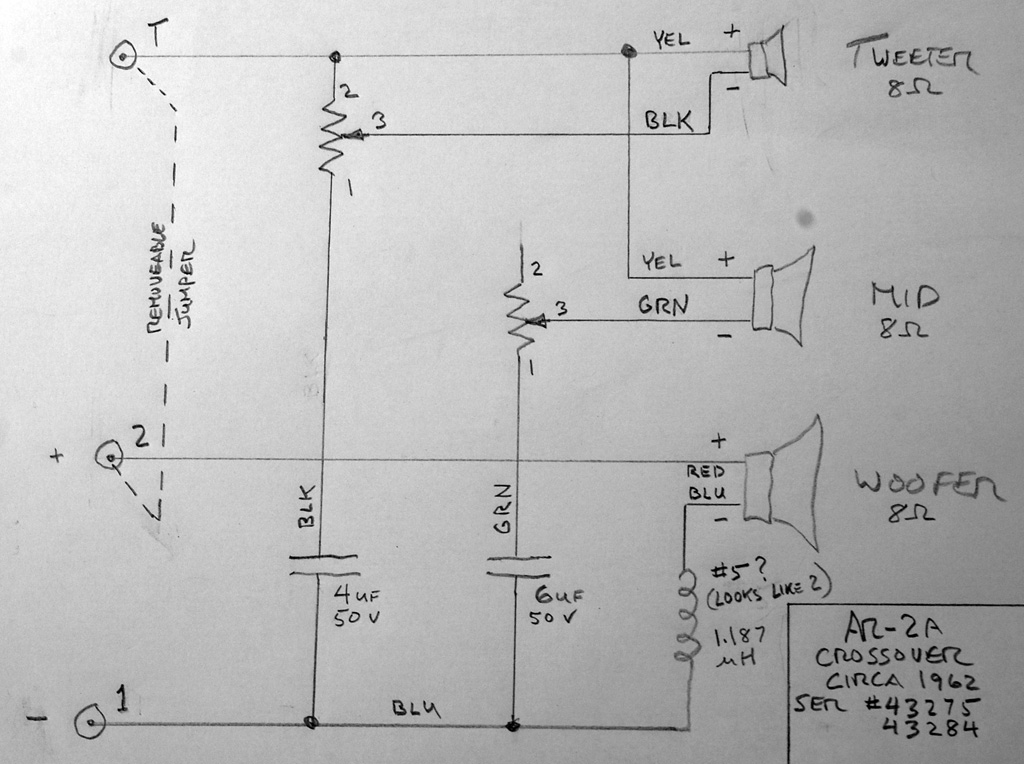 T
YEL +
TWEETER
8Ω
-
2
3
BLK
1
REMOVEABLE
JUMPER
YEL +
2
3
GRN
-
MID
8Ω
1
+ 2
+
RED
BLU
-
WOOFER
8Ω
BLK
GRN
4uF
50V
6uF
50V
#5?
(LOOKS LIKE 2)
1.187
uH
- 1
BLU
AR-2A
CROSSOVER
CIRCA 1962
SER #43275
43284